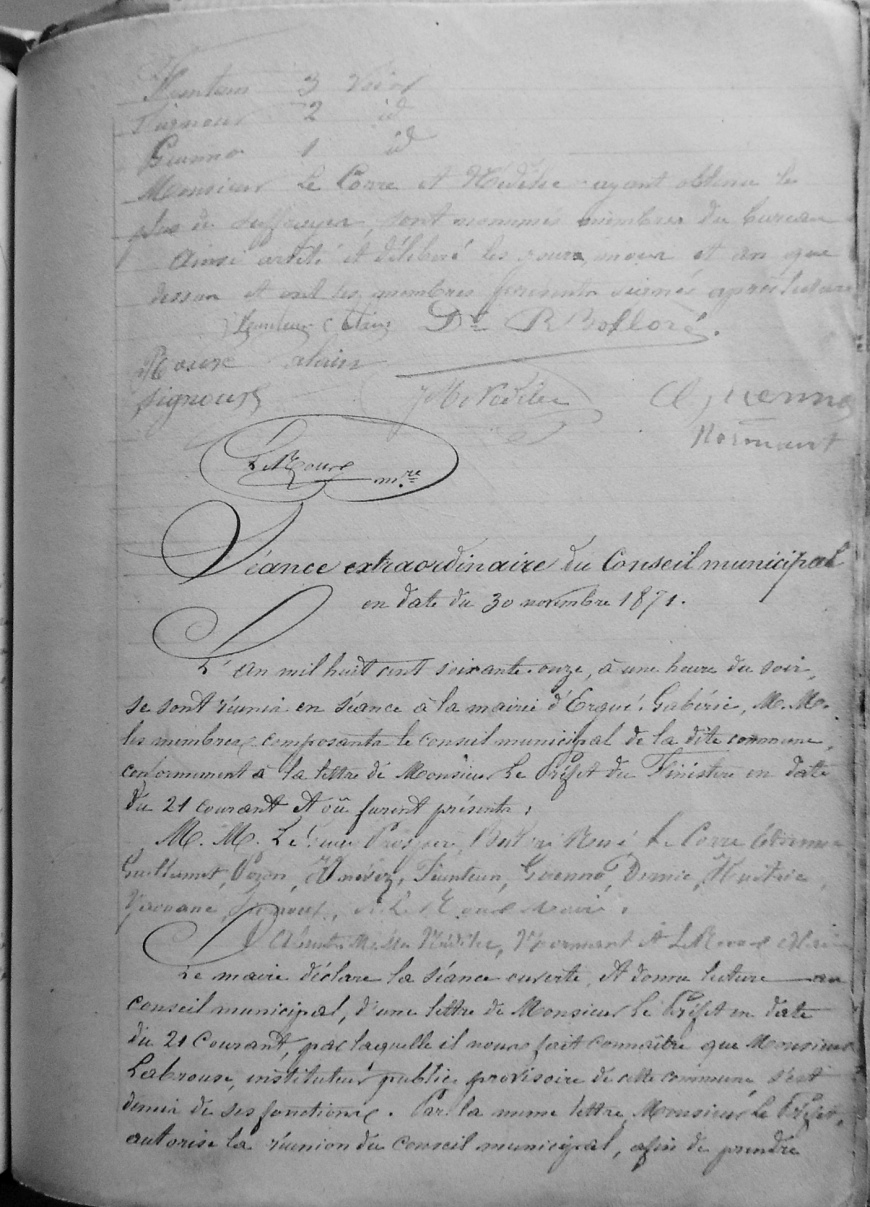 3 voix
2 id
Guenno 1 id
Monsieur Le Corre et Nédélec ayant obtenu le
plus de suffrages, sont nommés membres du bureau
Ainsi arrêté et délibéré les jour, mois et an que
dessus et ont les membres présents signés après lecture
Dr R Bolloré.
Rouxe alain
Signour
Guenno
Normant
Le Roux mre
Séance extraordinaire du Conseil municipal
en date du 30 novembre 1871.
L'an mil huit cent soixante onze, à une heure du soir,
se sont réunis en séance à la mairie d'Ergué-Gabéric, M.M.
les membres composants le conseil municipal de la dite commune,
conformément à la lettre de Monsieur Le Préfet du Finistère en date
du 21 courant Et où furent présents :
M. M. Prosper, René, Le Corre
Feunteun, Guenno,
Absents
Le maire déclare la séance ouverte, Et donne lecture au
conseil municipal, d'une lettre de Monsieur Le Préfet en date
du 21 Courant, par laquelle il nous fait connaître que Monsieur
Labrouse, instituteur public provisoire de cette commune s'est
demis de ses fonctions. Par la même lettre Monsieur Le Préfet,
autorise la réunion du conseil municipal, afin de prendre